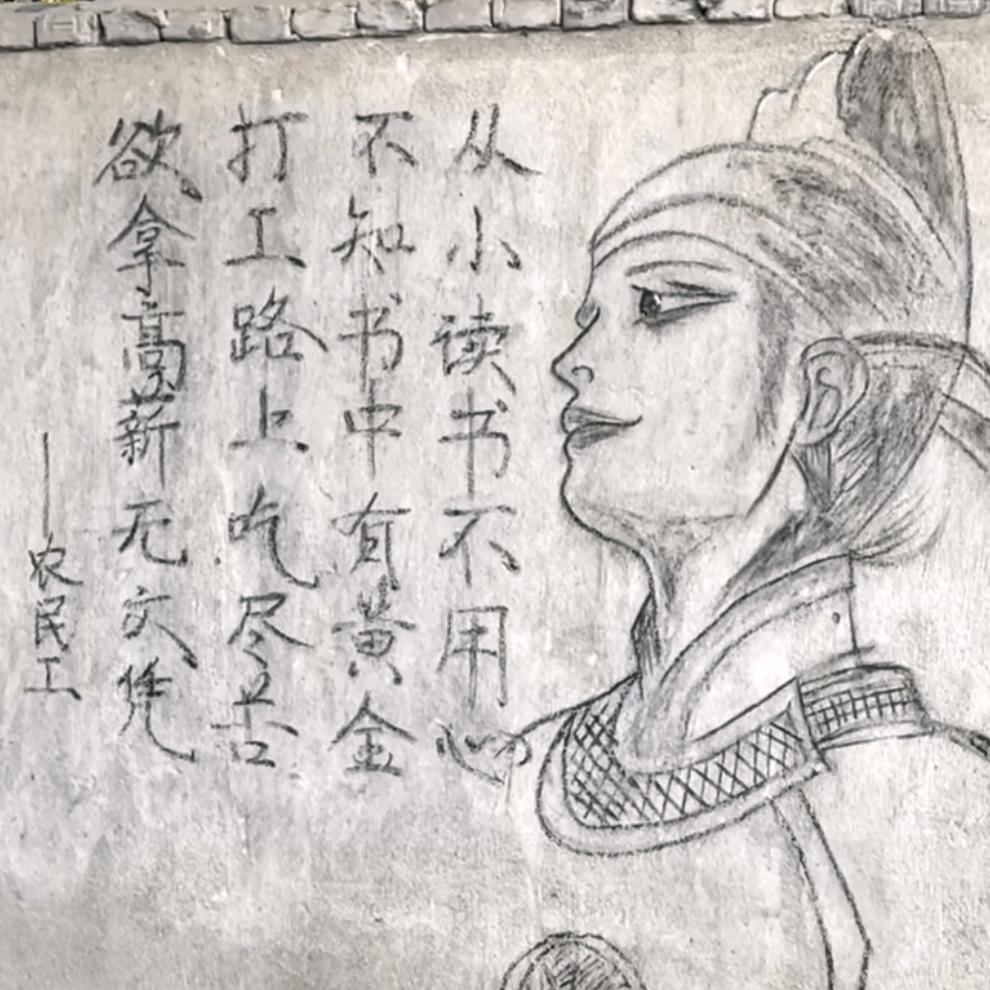 从小读书不用心
不知书中有黄金
打工路上吃尽苦
欲拿高薪无文凭
——农民工